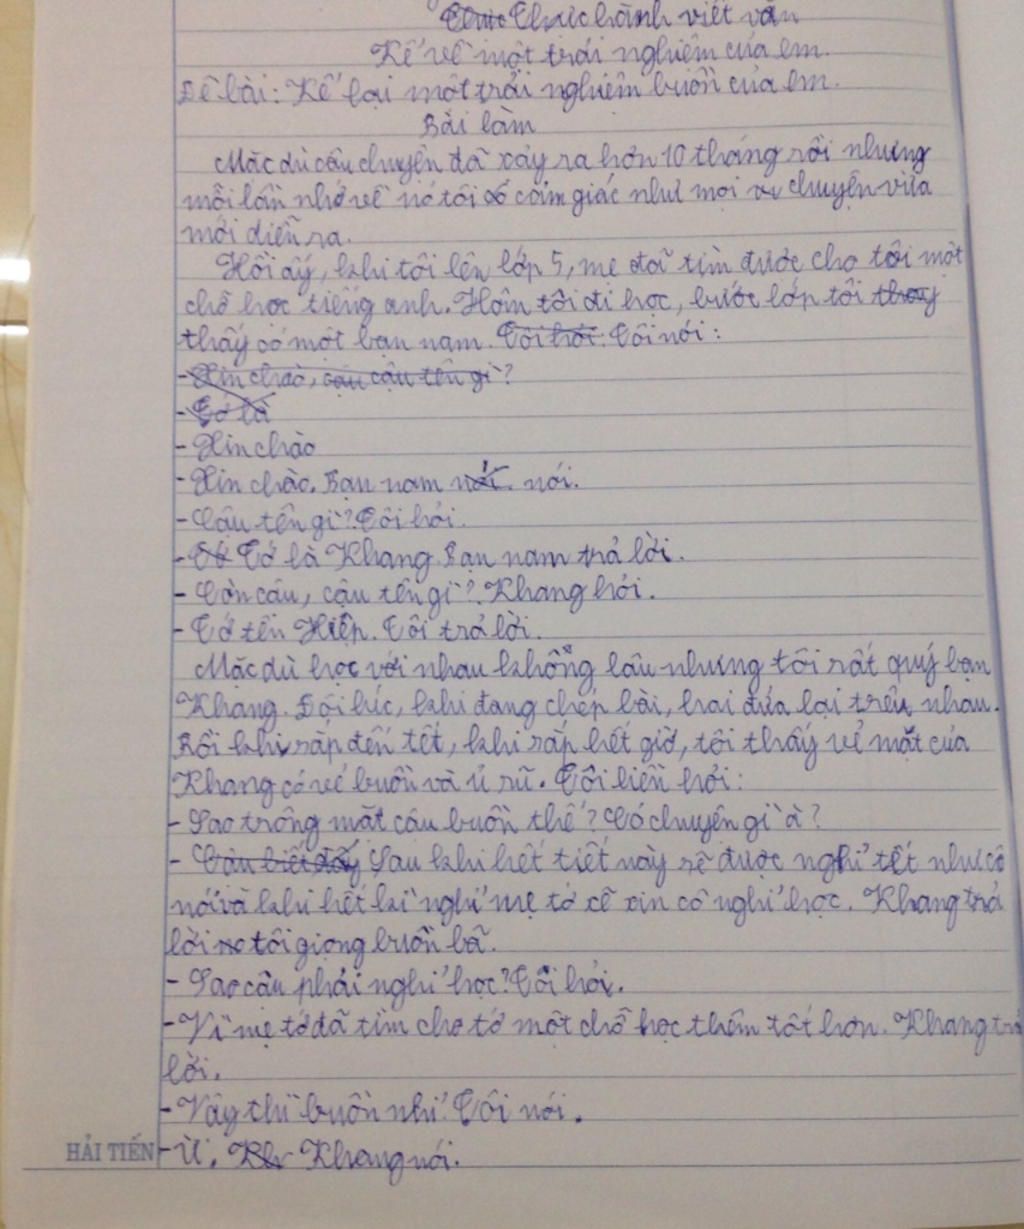 Thực Thực hành viết văn
Kể về một trải nghiệm của em.
Đề bài: Kể lại một trải nghiệm buồn của em.
Bài làm
Mặc dù câu chuyện đã xảy ra hơn 10 tháng rồi nhưng
mỗi lần nhớ về nó tôi có cảm giác như mọi chuyện vừa
mới diễn ra.
Hồi ấy, khi tôi lên lớp 5, mẹ đã tìm được cho tôi một
chỗ học tiếng anh. Hôm tôi đi học, bước lớp tôi thấy
thấy có một bạn nam. Tôi hỏi: Tôi nói:
- Xin chào, cậu cậu tên gì?
- Tớ là
- Xin chào
- Xin chào. Bạn nam nói. nói.
- Cậu tên gì? Tôi hỏi.
- Tớ Tớ là Khang. Bạn nam trả lời.
- Còn cậu, cậu tên gì? Khang hỏi.
- Tớ tên Hiệp. Tôi trả lời.
Mặc dù học với nhau không lâu nhưng tôi rất quý bạn
Khang. Đôi lúc, khi đang chép bài, hai đứa lại trêu nhau.
Rồi khi sắp đến tết, khi sắp hết giờ, tôi thấy vẻ mặt của
Khang có vẻ buồn và ủ rũ. Tôi liền hỏi:
- Sao trông mặt cậu buồn thế? Có chuyện gì à?
- Sau khi hết tiết này sẽ được nghỉ tết như cô
nói và khi hết kì nghỉ mẹ tớ sẽ xin cô nghỉ học. Khang trả
lời tôi giọng buồn bã.
- Sao cậu phải nghỉ học? Tôi hỏi.
- Vì mẹ tớ đã tìm cho tớ một chỗ học thêm tốt hơn. Khang trả
lời.
- Vậy thì buồn nhỉ! Tôi nói.
- Ừ. Kh Khang nói.
HẢI TIẾN